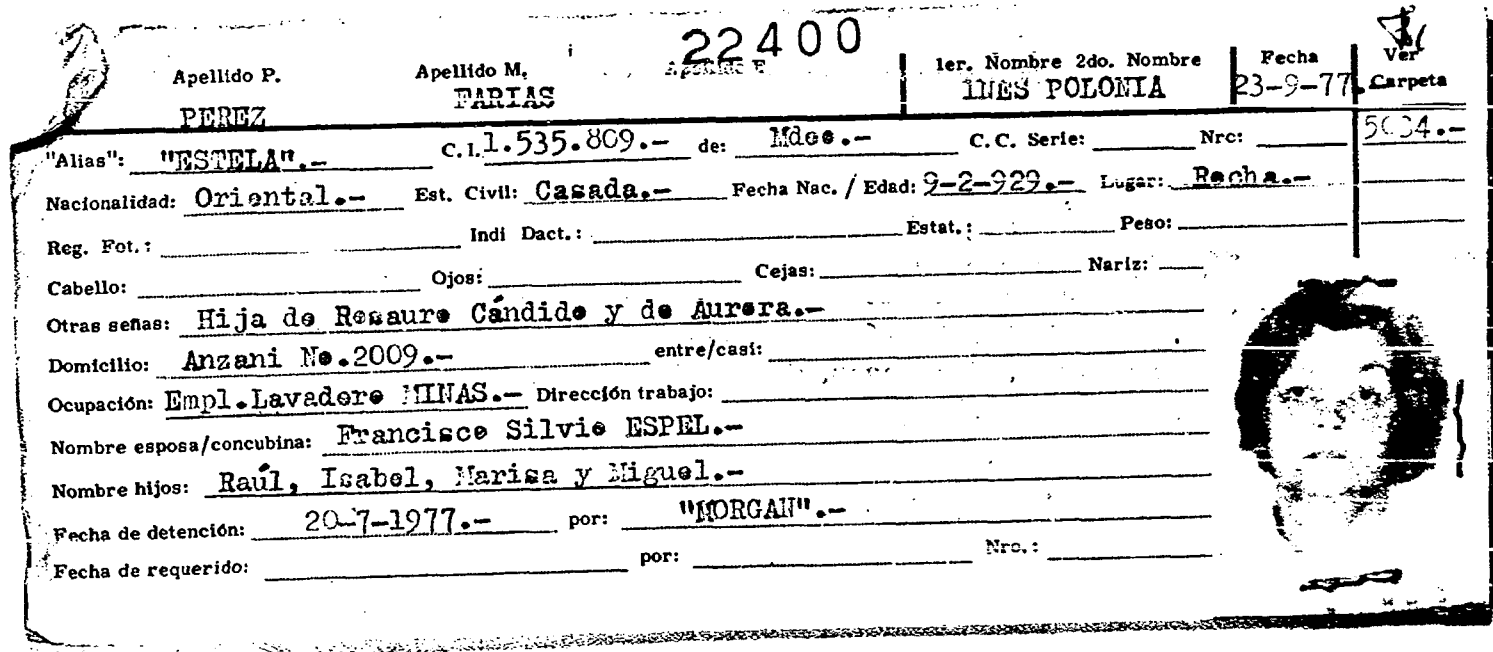 22400
Apellido P. Apellido M. 1er. Nombre 2do. Nombre Fecha Ver
PEREZ FARIAS INES POLONIA 23-9-77. Carpeta
"Alias": "ESTELA".- C.I. 1.535.809.- de: Mdeo.- C.C. Serie: Nro: 5034.-
Nacionalidad: Oriental.- Est. Civil: Casada.- Fecha Nac. / Edad: 9-2-929.- Lugar: Rocha.-
Reg. Fot.: Indi Dact.: Estat.: Peso:
Cabello: Ojos: Cejas: Nariz:
Otras señas: Hija de Rosauro Cándido y de Aurora.-
Domicilio: Anzani No.2009.- entre/casi:
Ocupación: Empl.Lavadero MINAS.- Dirección trabajo:
Nombre esposa/concubina: Francisco Silvio ESPEL.-
Nombre hijos: Raúl, Isabel, Marisa y Miguel.-
Fecha de detención: 20-7-1977.- por: "MORGAN".-
Fecha de requerido: por: Nro.: